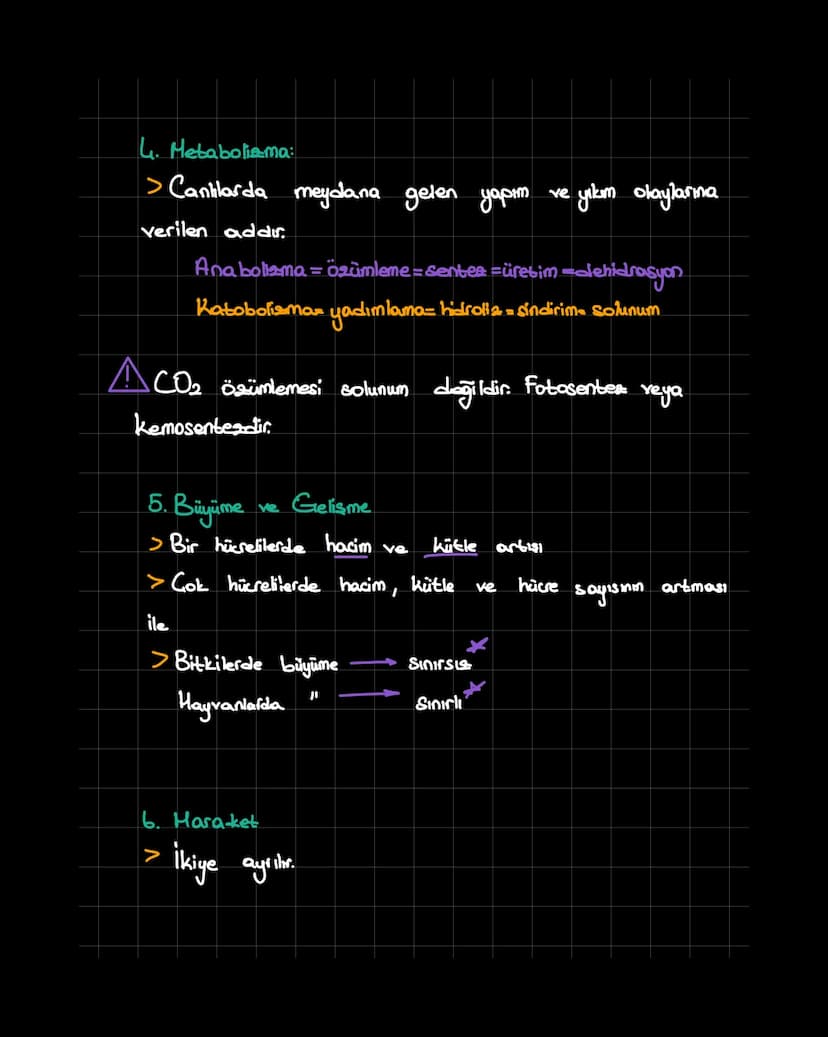 4. Metabolizma:
> Canlılarda meydana gelen yapım ve yıkım olaylarına
verilen addır.
Anabolizma = özümleme = sentez = üretim = dehidrasyon
Katobolizma = yadımlama = hidroliz = sindirim = solunum
! CO₂ özümlemesi solunum değildir. Fotosentez veya
kemosentezdir.
5. Büyüme ve Gelişme
> Bir hücrelilerde hacim ve kütle artışı
> Çok hücrelilerde hacim, kütle ve hücre sayısının artması
ile
> Bitkilerde büyüme → sınırsız
Hayvanlarda " → sınırlı
6. Haraket
> İkiye ayrılır.